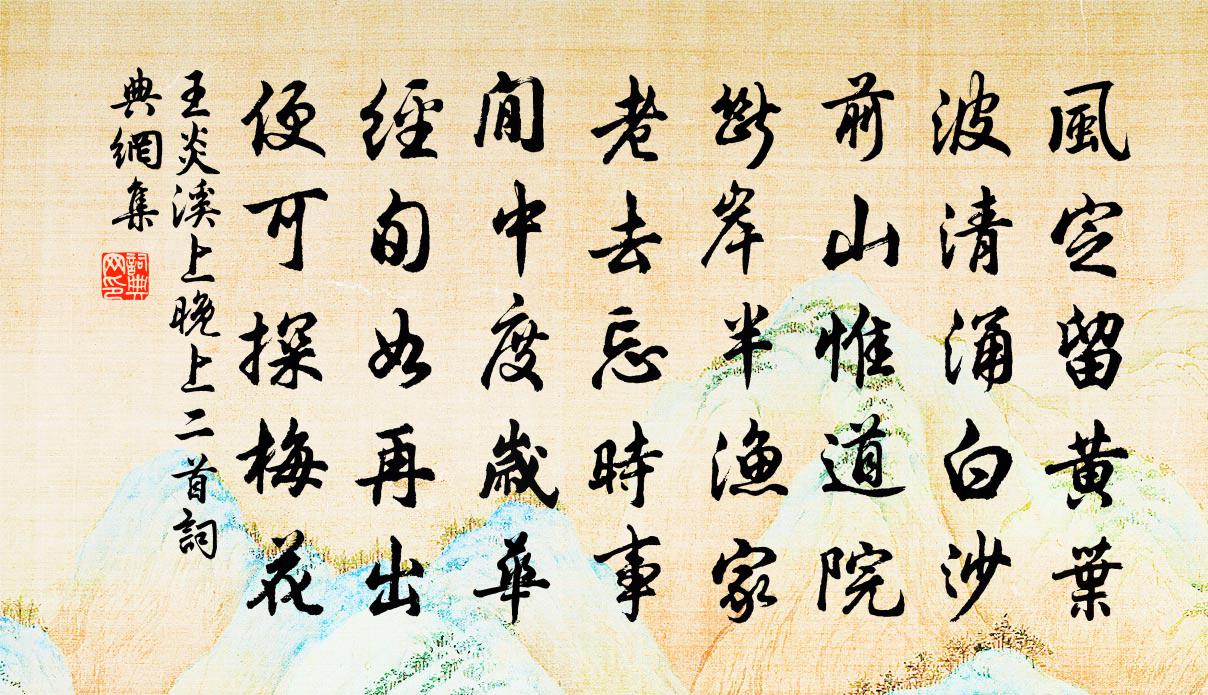 風定留黄葉
波清涌白沙
前山惟道院
斷岸半漁家
老去忘時事
閒中度歲華
經旬如再出
便可探梅花
王炎溪上晚上二首詞
典網集
詞典
网印